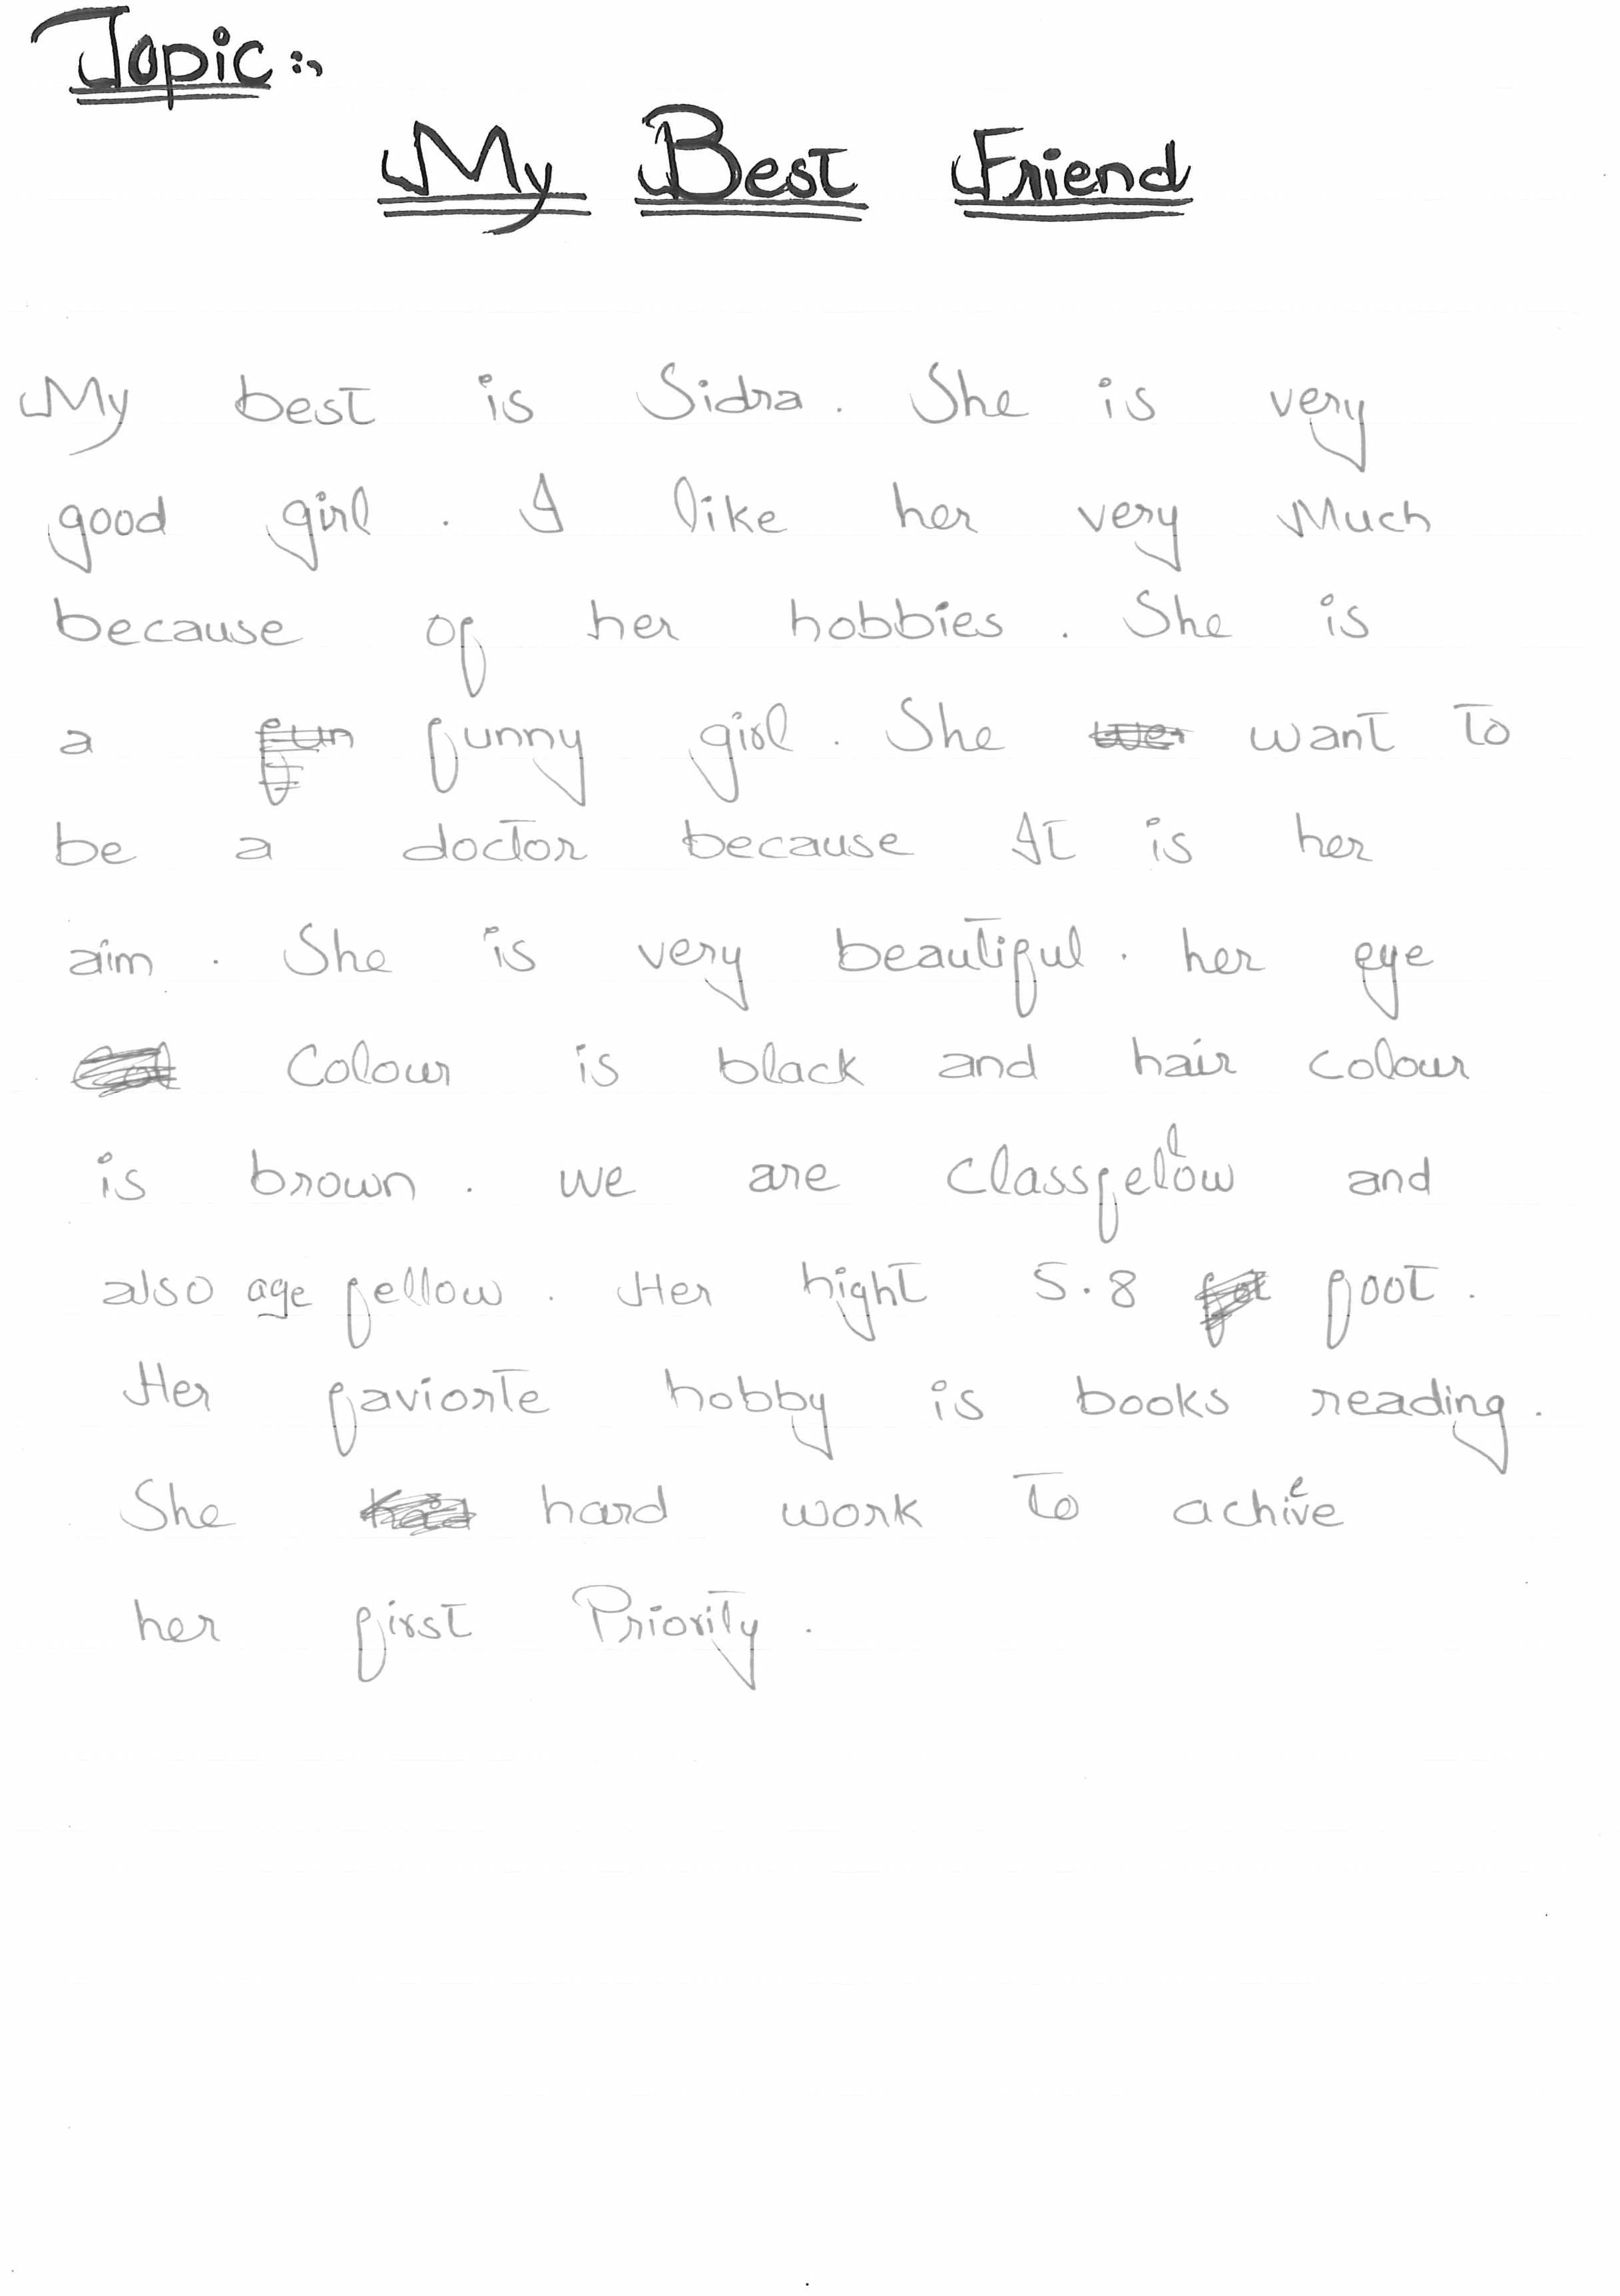 Topic :-
My Best Friend
My best is Sidra. She is very
good girl. I like her very Much
because of her hobbies. She is
a funny girl. She want to
be a doctor because It is her
aim. She is very beautiful. her eye
Colour is black and hair colour
is brown. we are Classfellow and
also age fellow. Her hight 5.8 foot.
Her faviorte hobby is books reading.
She hard work to achieve
her first Priority.